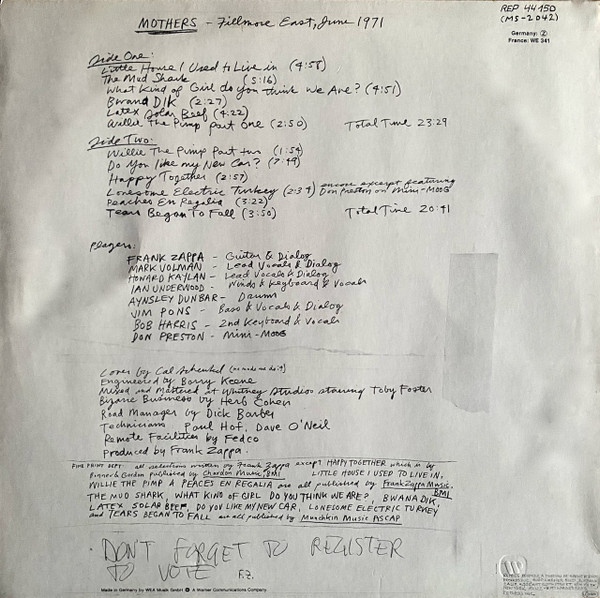 MOTHERS - Fillmore East, June 1971
REP 44150
(MS-2042)
Germany: Z
France: WE 341
Side One:
Little House I Used to Live in (4:58)
The Mud Shark (5:16)
What Kind of Girl do you think We Are? (4:51)
Bwana DIK (2:27)
Latex Solar Beef (4:22)
Willie The Pimp Part One (2:50) Total Time 23:29
Side Two:
Willie The Pimp Part two (1:54)
Do You like my New Car? (7:49)
Happy Together (2:57)
Lonesome Electric Turkey (2:34) encore excerpt featuring Don Preston on Mini-MOOG
Peaches En Regalia (3:22)
Tears Began To Fall (3:50) Total Time 20:41
Players:
FRANK ZAPPA - Guitar & Dialog
MARK VOLMAN - Lead Vocals & Dialog
HOWARD KAYLAN - Lead Vocals & Dialog
IAN UNDERWOOD - Winds & Keyboard & Vocals
AYNSLEY DUNBAR - Drums
JIM PONS - Bass & Vocals & Dialog
BOB HARRIS - 2nd Keyboard & Vocals
DON PRESTON - Mini-MOOG
Cover by Cal Schenkel (he made me do it)
Engineered by Barry Keene
Mixed and Mastered at Whitney Studios starring Toby Foster
Bizarre Business by Herb Cohen
Road Manager by Dick Barber
Technicians Paul Hof, Dave O'Neil
Remote Facilities by Fedco
Produced by Frank Zappa.
FINE PRINT DEPT: all selections written by Frank Zappa except HAPPY TOGETHER which is by
Bonner & Gordon published by Chardon Music, BMI LITTLE HOUSE I USED TO LIVE IN,
WILLIE THE PIMP & PEACES EN REGALIA are all published by Frank Zappa Music, BMI
THE MUD SHARK, WHAT KIND OF GIRL DO YOU THINK WE ARE?, BWANA DIK,
LATEX SOLAR BEEF, DO YOU LIKE MY NEW CAR, LONESOME ELECTRIC TURKEY
and TEARS BEGAN TO FALL are all published by Munchkin Music ASCAP
DON'T FORGET TO REGISTER
TO VOTE F.Z.
Made in Germany by WEA Musik GmbH A Warner Communications Company